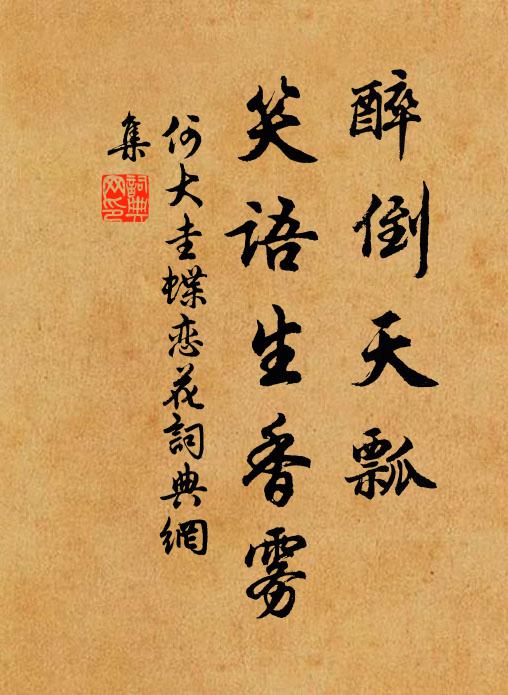 醉倒天瓢
笑语生香雾
何大圭蝶恋花詞典網
集
詞典
网印